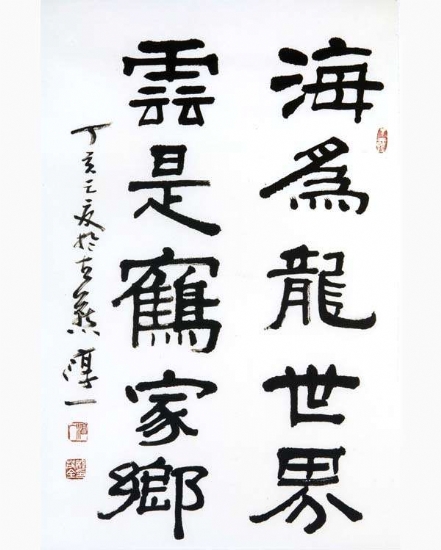 海為龍世界
雲是鶴家鄉
丁亥之夏於古燕淳一